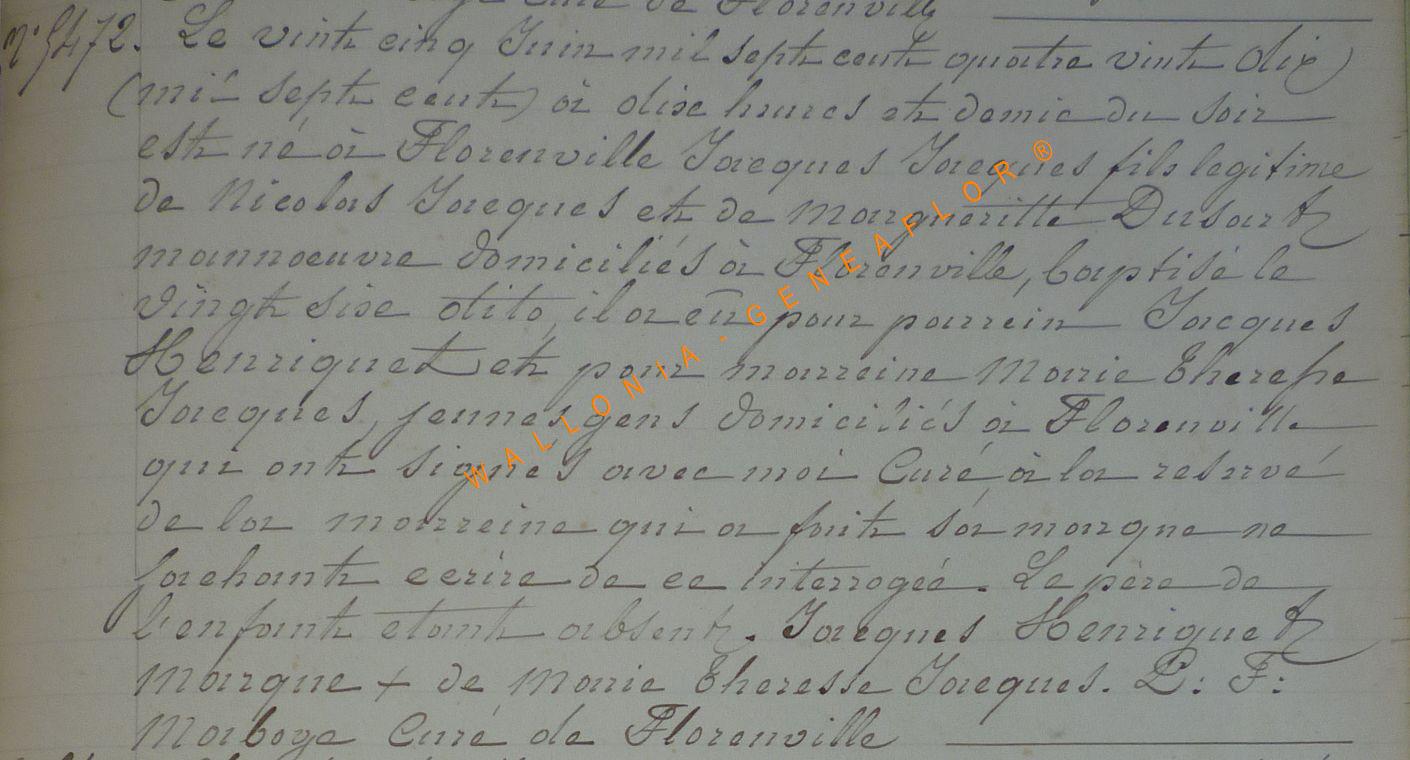 Curé de Florenville
n° 5472. Le vint cinq Juin mil sept cent quatre vint dix
(mil sept cent) à dixe heures et demie du soir
est né à Florenville Jacques Jacques fils legitime
de Nicolas Jacques et de Margueritte Dusart
mannoeuvre domiciliés à Florenville, baptisé le
vingt sixe dito, il a eu pour parrein Jacques
Henriquet et pour marreine Marie Therese
Jacques, jeunes gens domiciliés à Florenville
qui ont signés avec moi Curé à la reservé
de la marreine qui a fait sa marque ne
sachant ecrire de ce interrogée. Le père de
l'enfant etant absent. Jacques Henriquet
Marque + de Marie Theresse Jacques.
Curé de Florenville
WALLONIA - GENEAFLOR ®